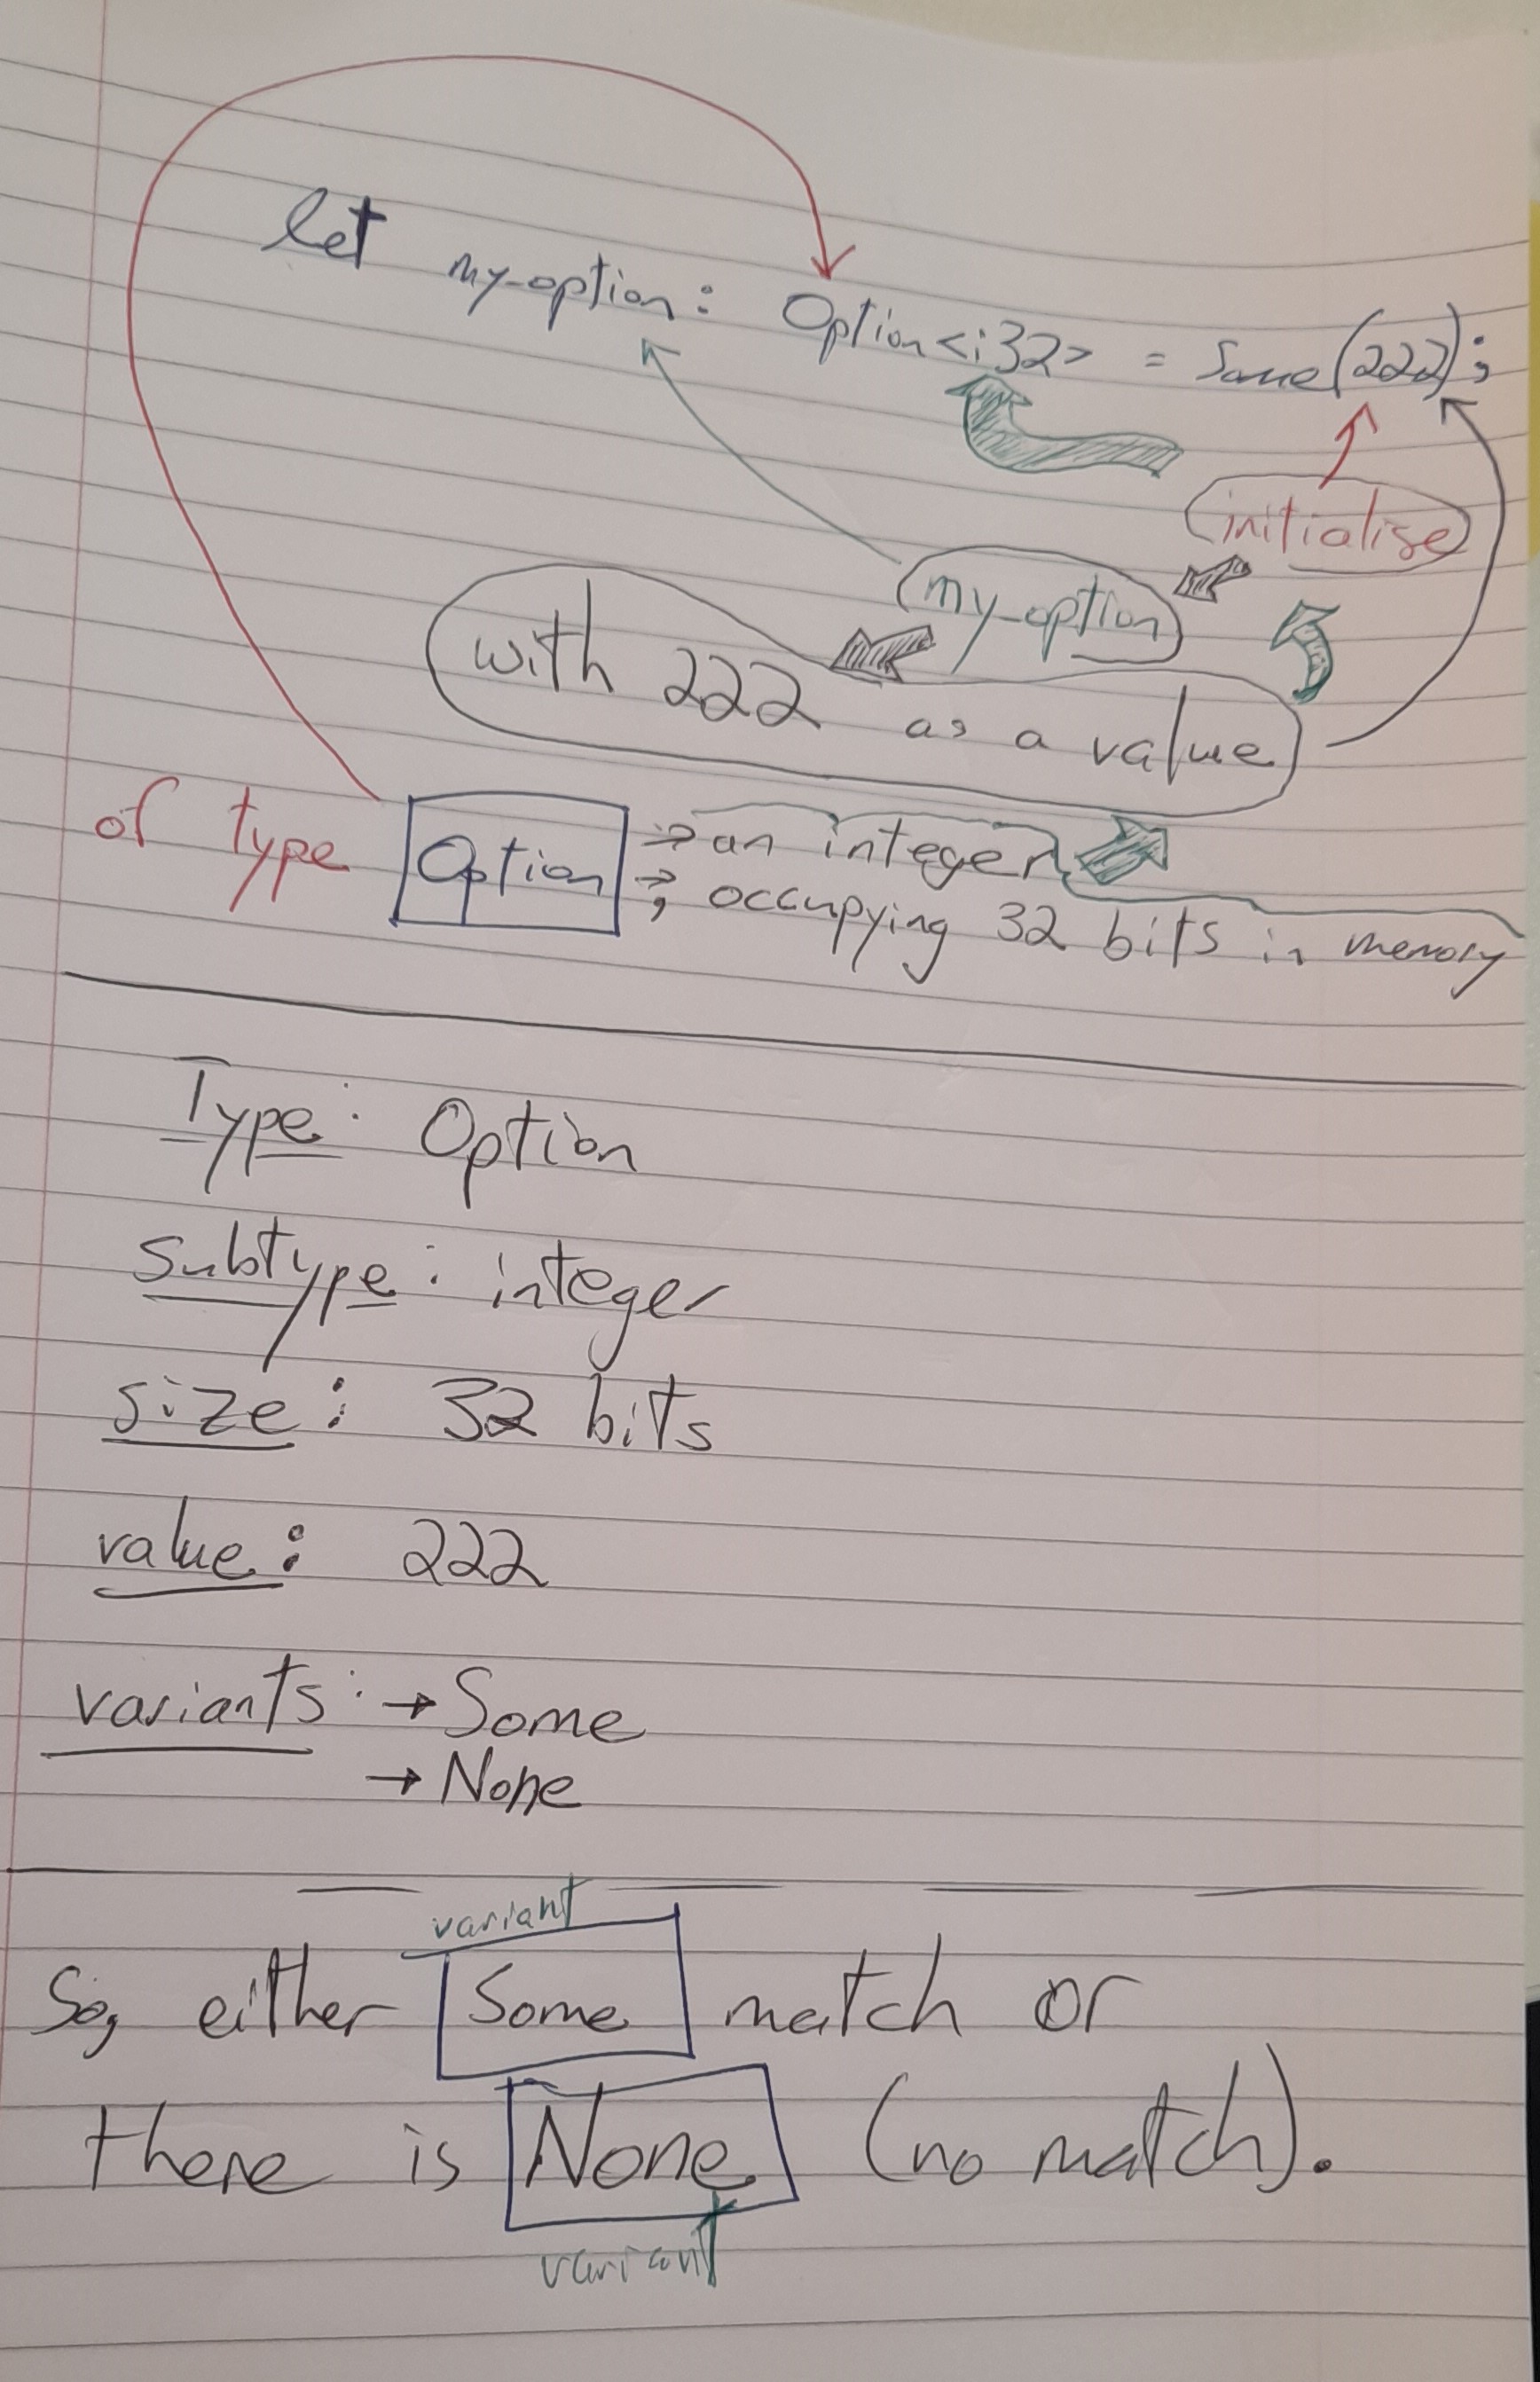 let my-option: Option<i32> = Some(222);
initialise
my-option
with 222 as a value
of type Option → an integer
→, occupying 32 bits in memory
Type: Option
Subtype: integer
size: 32 bits
value: 222
variants: → Some
→ None
variant
So, either Some match or
there is None (no match).
variant